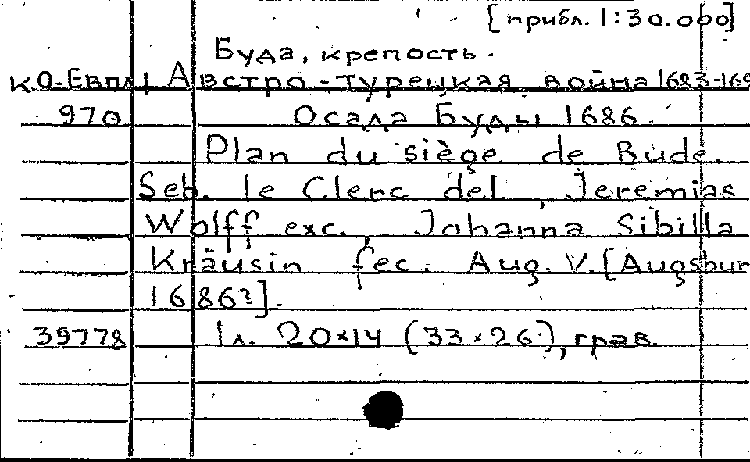 [прибл. 1:30.000]
Буда, крепость.
КО-Евпл Австро-турецкая война 1683-169
970 Осада Буды 1686.
Plan du siège de Bude.
Seb. le Clerc del., Jeremias
Wolff exc., Johanna Sibilla
Kräusin fec. Aug. V. [Augsbur
1686?].
39778 1 л. 20×14 (33×26), грав.